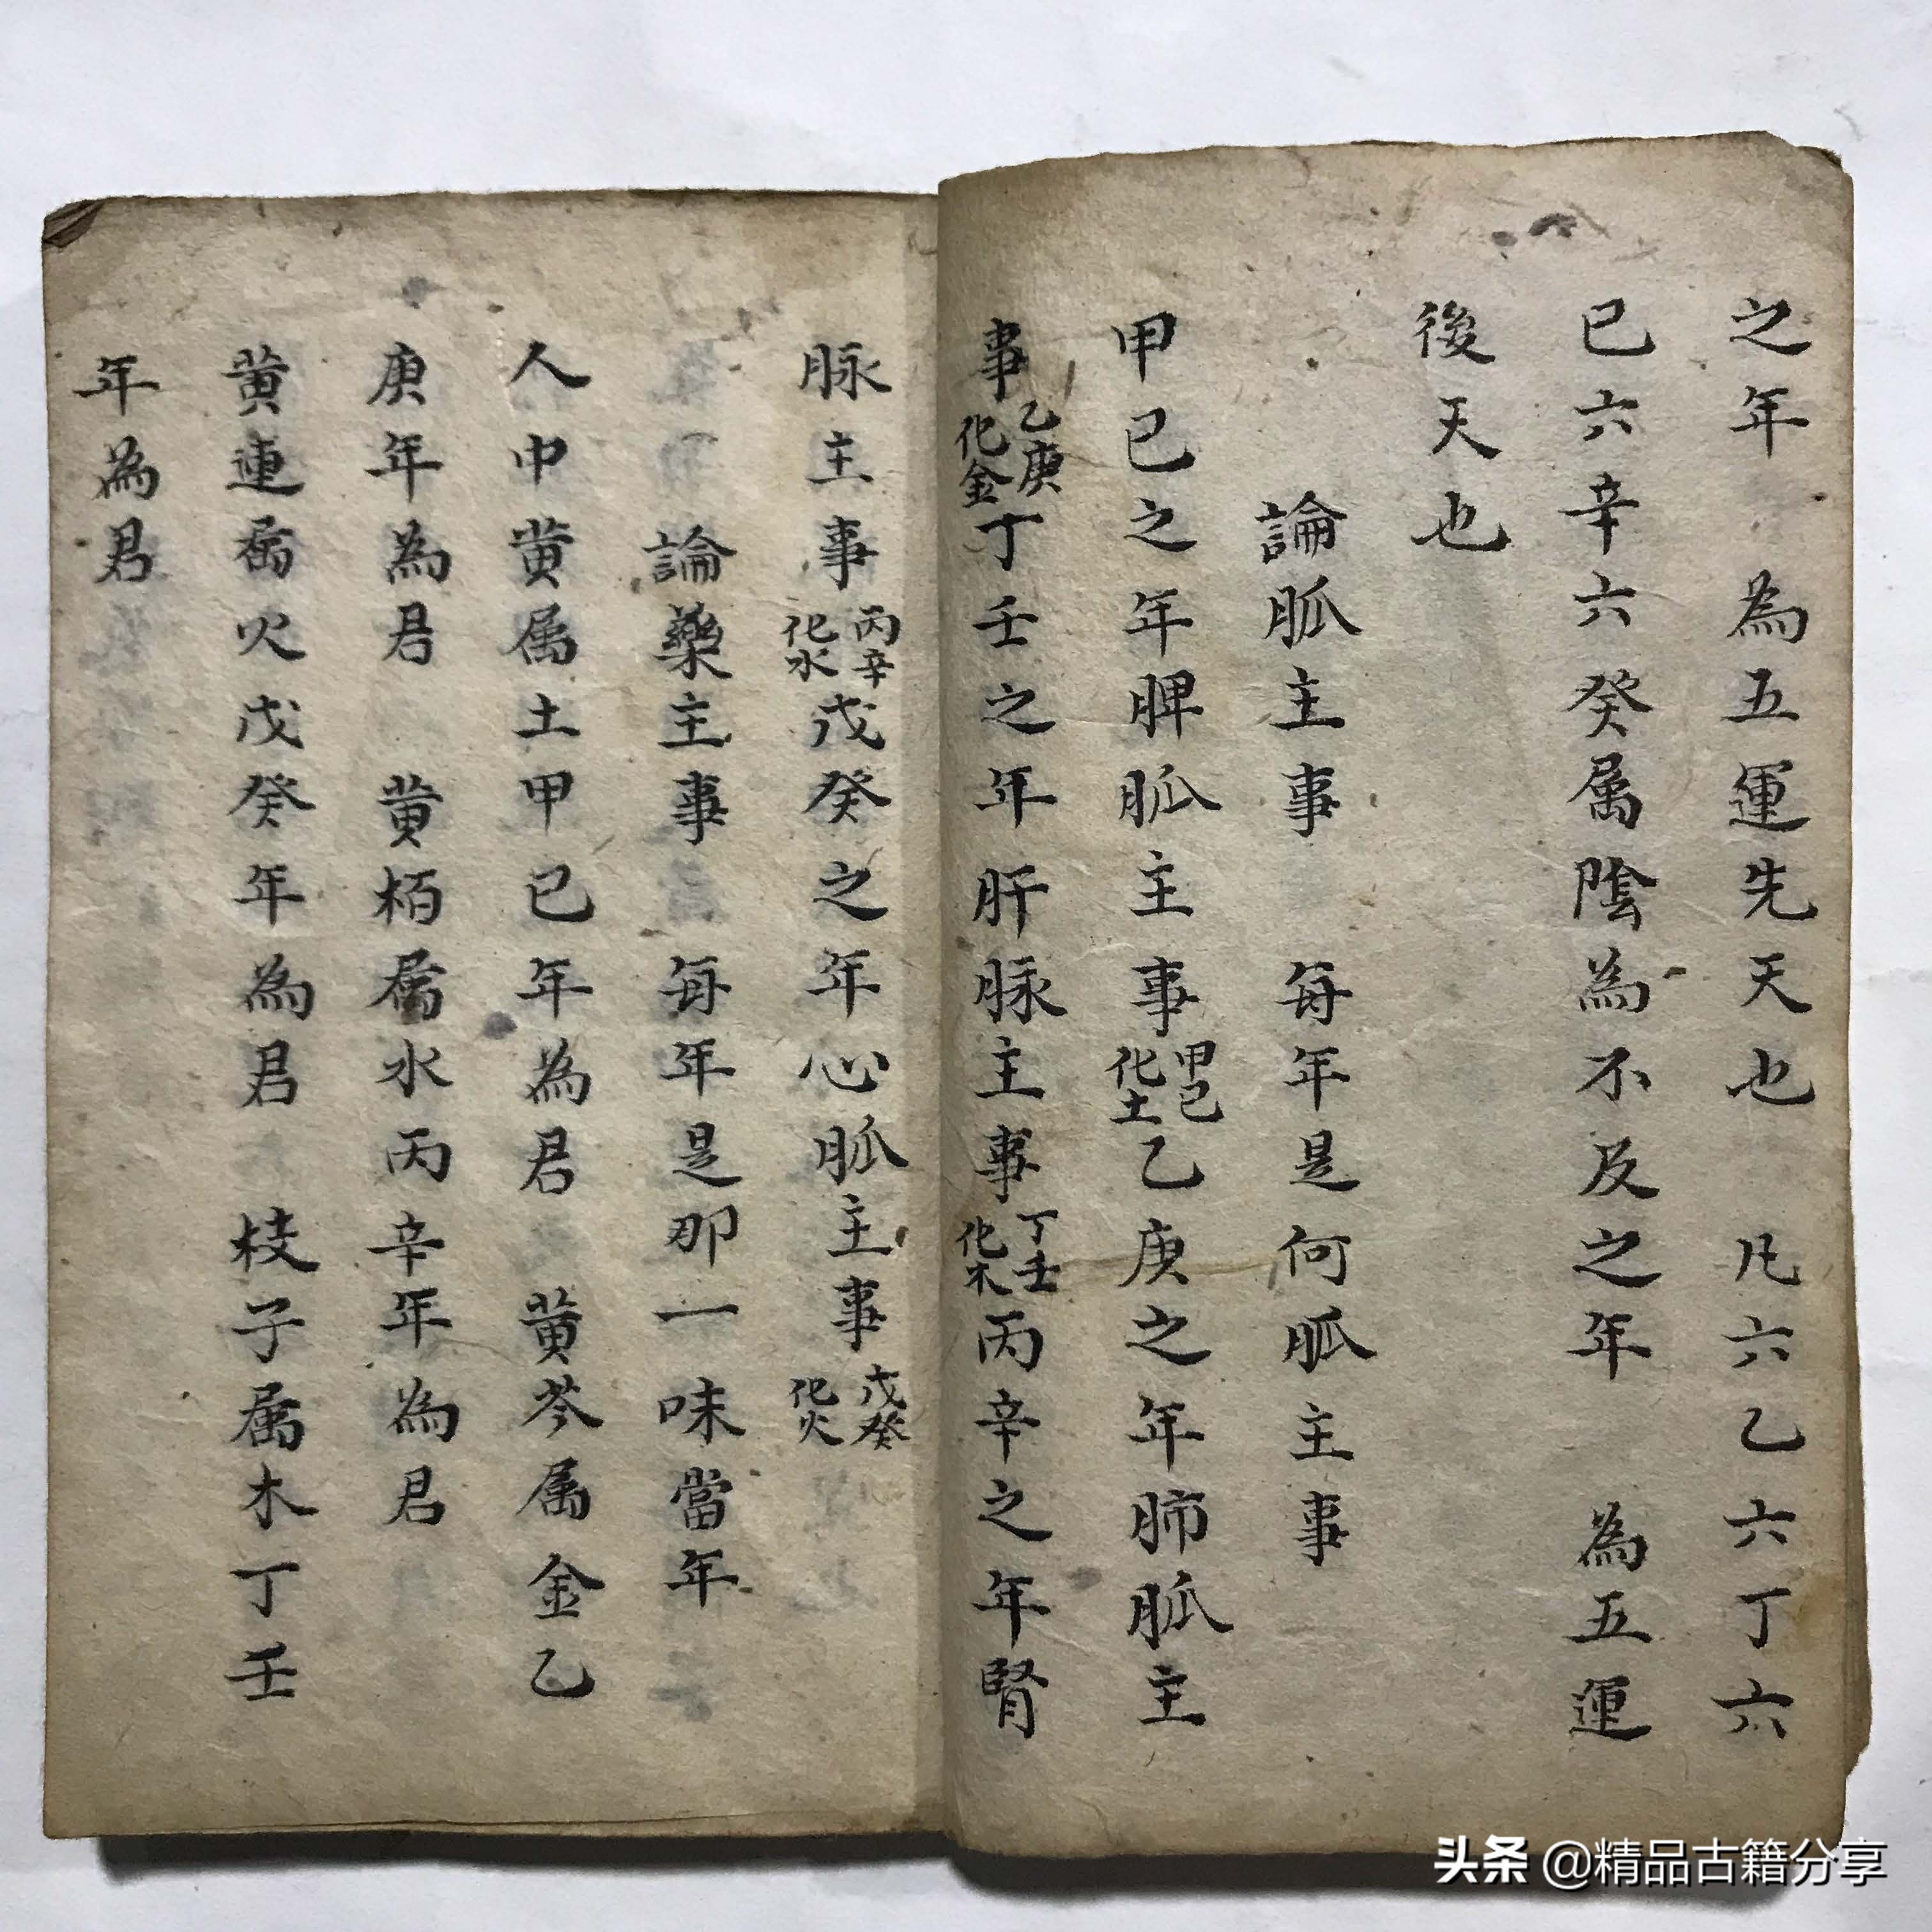 之年　為五運先天也　凡六乙六丁六
已六辛六癸属陰為不及之年　為五運
後天也
論脈主事　每年是何脈主事
甲己之年脾脈主事甲己化土乙庚之年肺脈主
事乙庚化金丁壬之年肝脉主事丁壬化木丙辛之年腎
脉主事丙辛化水戊癸之年心脈主事戊癸化火
論藥主事　每年是那一味當年
人中黄属土甲已年為君　黄芩属金乙
庚年為君　黄栢属水丙辛年為君
黄連属火戊癸年為君　枝子属木丁壬
年為君
头条 @精品古籍分享